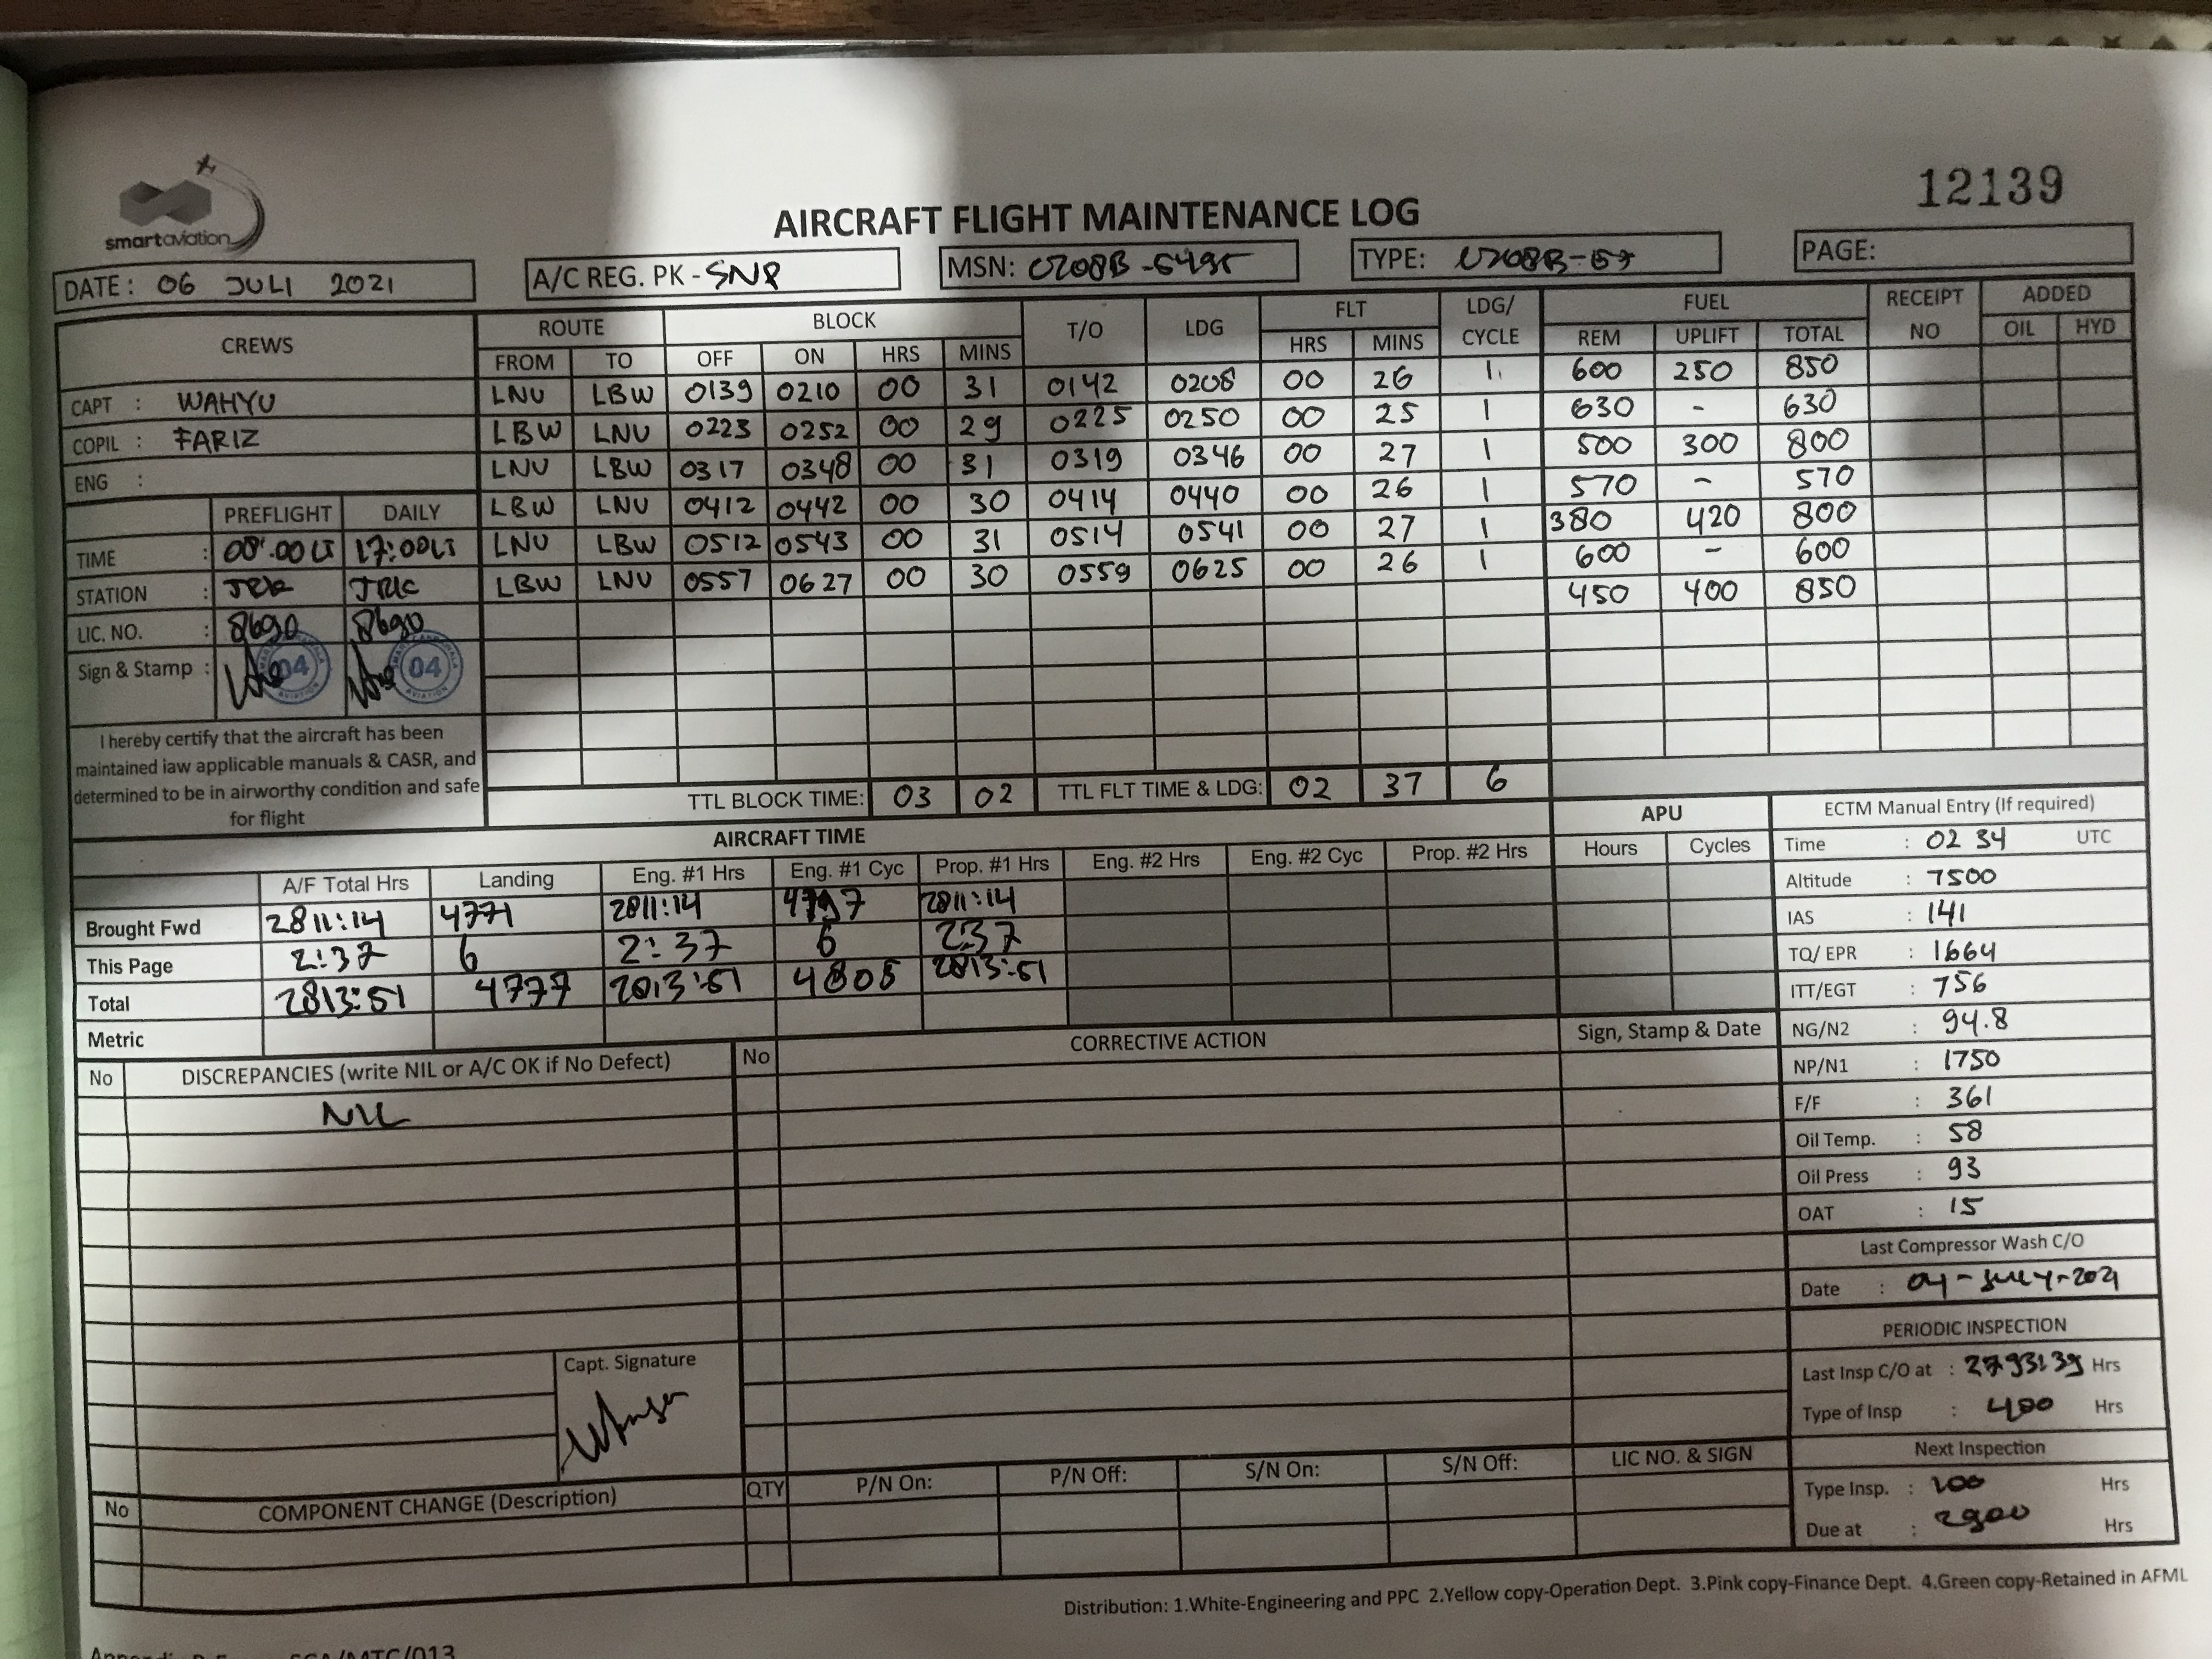 smartaviation
12139
AIRCRAFT FLIGHT MAINTENANCE LOG
DATE: 06 JULI 2021
A/C REG. PK - SNP
MSN:
TYPE:
PAGE:
CREWS
ROUTE BLOCK T/O LDG FLT LDG/ CYCLE FUEL RECEIPT NO ADDED
FROM TO OFF ON HRS MINS HRS MINS REM UPLIFT TOTAL OIL HYD
LNU LBW 0139 0210 00 31 0142 0208 00 26 1 600 250 850
LBW LNU 0223 0252 00 29 0225 0250 00 25 1 630 - 630
LNU LBW 0317 0348 00 31 0319 0346 00 27 1 500 300 800
LBW LNU 0412 0442 00 30 0414 0440 00 26 1 570 - 570
LNU LBW 0512 0543 00 31 0514 0541 00 27 1 380 420 800
LBW LNU 0557 0627 00 30 0559 0625 00 26 1 600 - 600
450 400 850
CAPT : WAHYU
COPIL : FARIZ
ENG :
PREFLIGHT DAILY
TIME : 08:00LT 17:00LT
STATION :
LIC. NO. : 8690 8690
Sign & Stamp : 04 04
I hereby certify that the aircraft has been
maintained iaw applicable manuals & CASR, and
determined to be in airworthy condition and safe
for flight
TTL BLOCK TIME: 03 02 TTL FLT TIME & LDG: 02 37 6
AIRCRAFT TIME
A/F Total Hrs Landing Eng. #1 Hrs Eng. #1 Cyc Prop. #1 Hrs Eng. #2 Hrs Eng. #2 Cyc Prop. #2 Hrs
Brought Fwd 2811:14 4771 2811:14 2811:14
This Page 2:37 6 2:37 6 2:37
Total 2813:51 4777 2813:51 2813:51
Metric
APU
Hours Cycles
ECTM Manual Entry (If required)
Time : 02 34 UTC
Altitude : 7500
IAS : 141
TQ/ EPR : 1664
ITT/EGT : 756
NG/N2 : 94.8
NP/N1 : 1750
F/F : 361
Oil Temp. : 58
Oil Press : 93
OAT : 15
Last Compressor Wash C/O
Date : 04-July-2021
PERIODIC INSPECTION
Last Insp C/O at : 2793:39 Hrs
Type of Insp : 400 Hrs
Next Inspection
Type Insp. : Hrs
Due at : 2900 Hrs
No DISCREPANCIES (write NIL or A/C OK if No Defect) No CORRECTIVE ACTION Sign, Stamp & Date
NIL
Capt. Signature
No COMPONENT CHANGE (Description) QTY P/N On: P/N Off: S/N On: S/N Off: LIC NO. & SIGN
Distribution: 1.White-Engineering and PPC 2.Yellow copy-Operation Dept. 3.Pink copy-Finance Dept. 4.Green copy-Retained in AFML